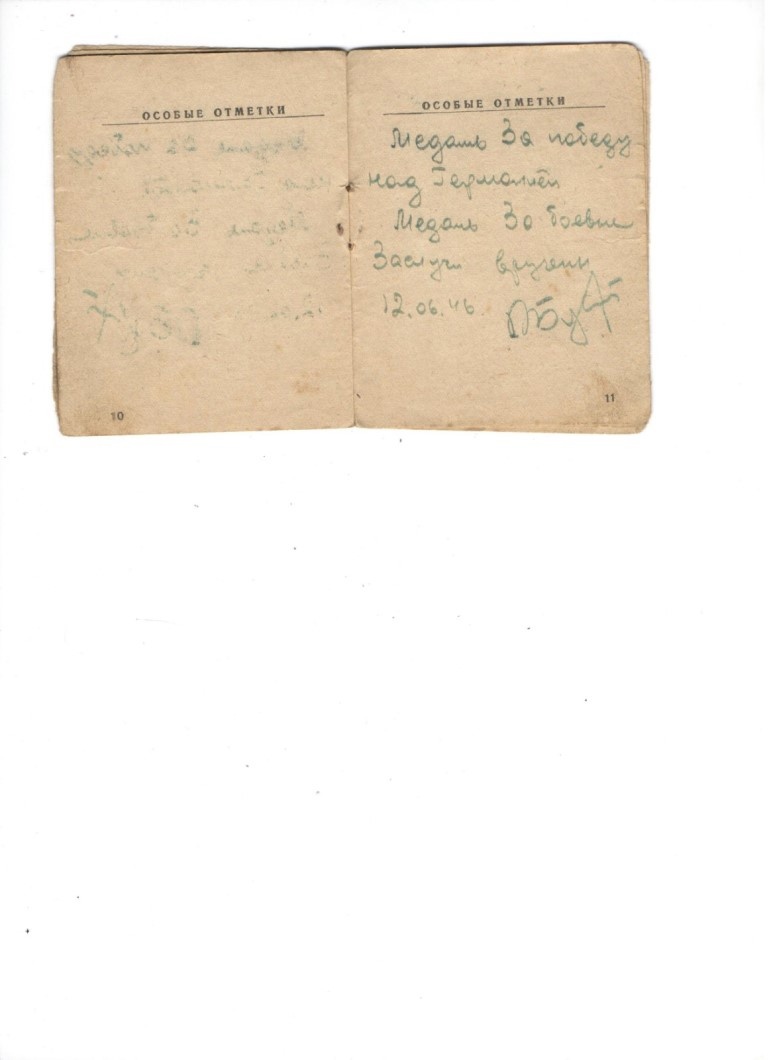 ОСОБЫЕ ОТМЕТКИ
10
ОСОБЫЕ ОТМЕТКИ
Медаль За победу
над Германией
Медаль За боевые
Заслуги вручены
12.06.46.
11